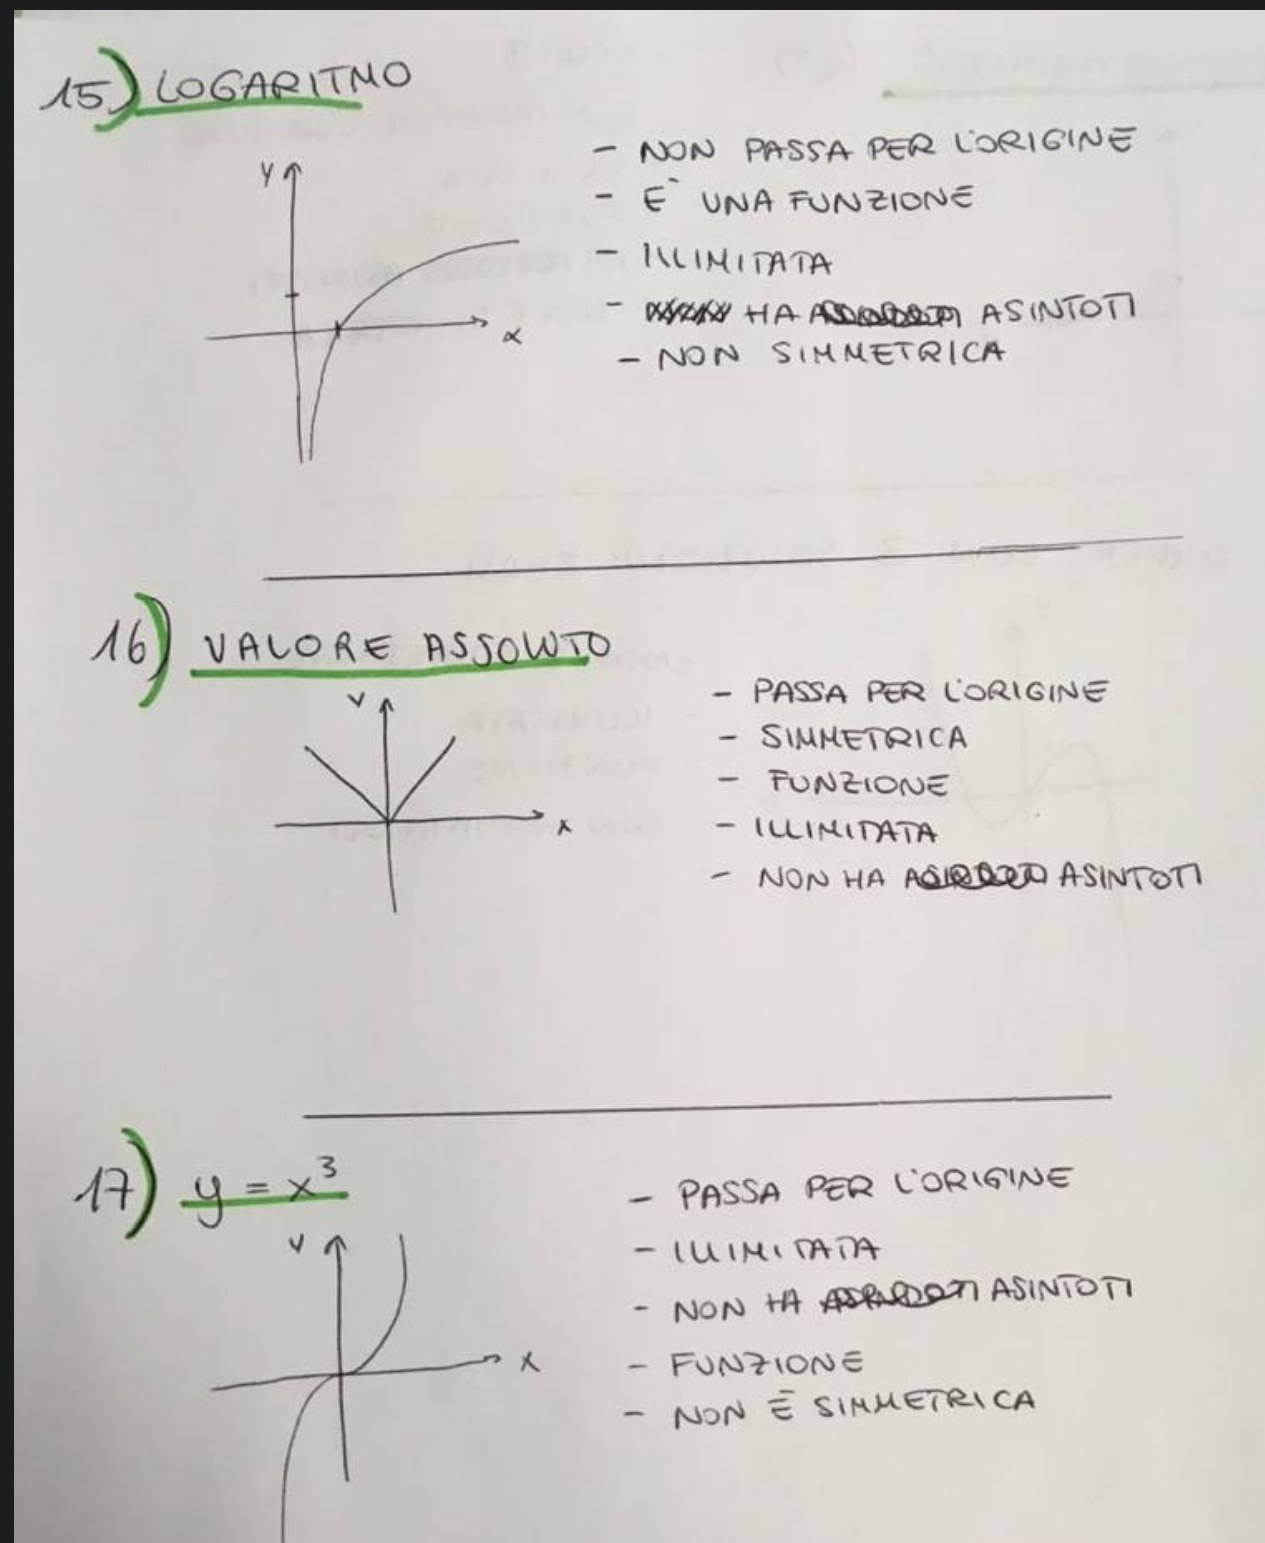 15) LOGARITMO
Y
x
- NON PASSA PER L'ORIGINE
- E` UNA FUNZIONE
- ILLIMITATA
- HA ASINTOTI
- NON SIMMETRICA
16) VALORE ASSOLUTO
Y
x
- PASSA PER L'ORIGINE
- SIMMETRICA
- FUNZIONE
- ILLIMITATA
- NON HA ASINTOTI
17) y = x³
Y
x
- PASSA PER L'ORIGINE
- ILLIMITATA
- NON HA ASINTOTI
- FUNZIONE
- NON È SIMMETRICA